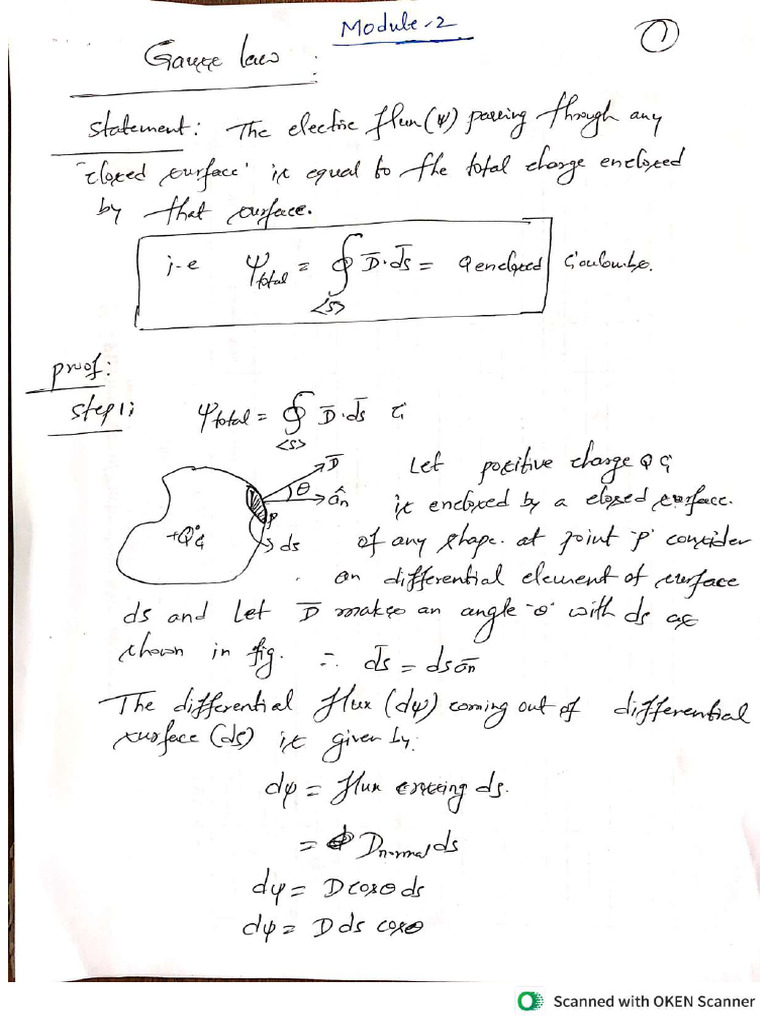 Module-2
1
Gauss law:
Statement: The electric flux (ψ) passing through any
'closed surface' is equal to the total charge enclosed
by that surface.
i-e ψtotal = ∮<s> D̅.d̅s̅ = Qenclosed Coulombs.
proof:
Step1;
ψtotal = ∮<s> D̅.d̅s̅
D̅
θ
ân
P
ds
+Q
Let positive charge Q
is enclosed by a closed surface.
of any shape. at point 'p' consider
an differential element of surface
ds and Let D̅ makes an angle 'θ' with ds as
shown in fig. ∴ d̅s̅ = ds a̅n
The differential flux (dψ) coming out of differential
surface (ds) is given by:
dψ = flux crossing ds.
= Dnormal ds
dψ = D cosθ ds
dψ = D ds cosθ
Scanned with OKEN Scanner